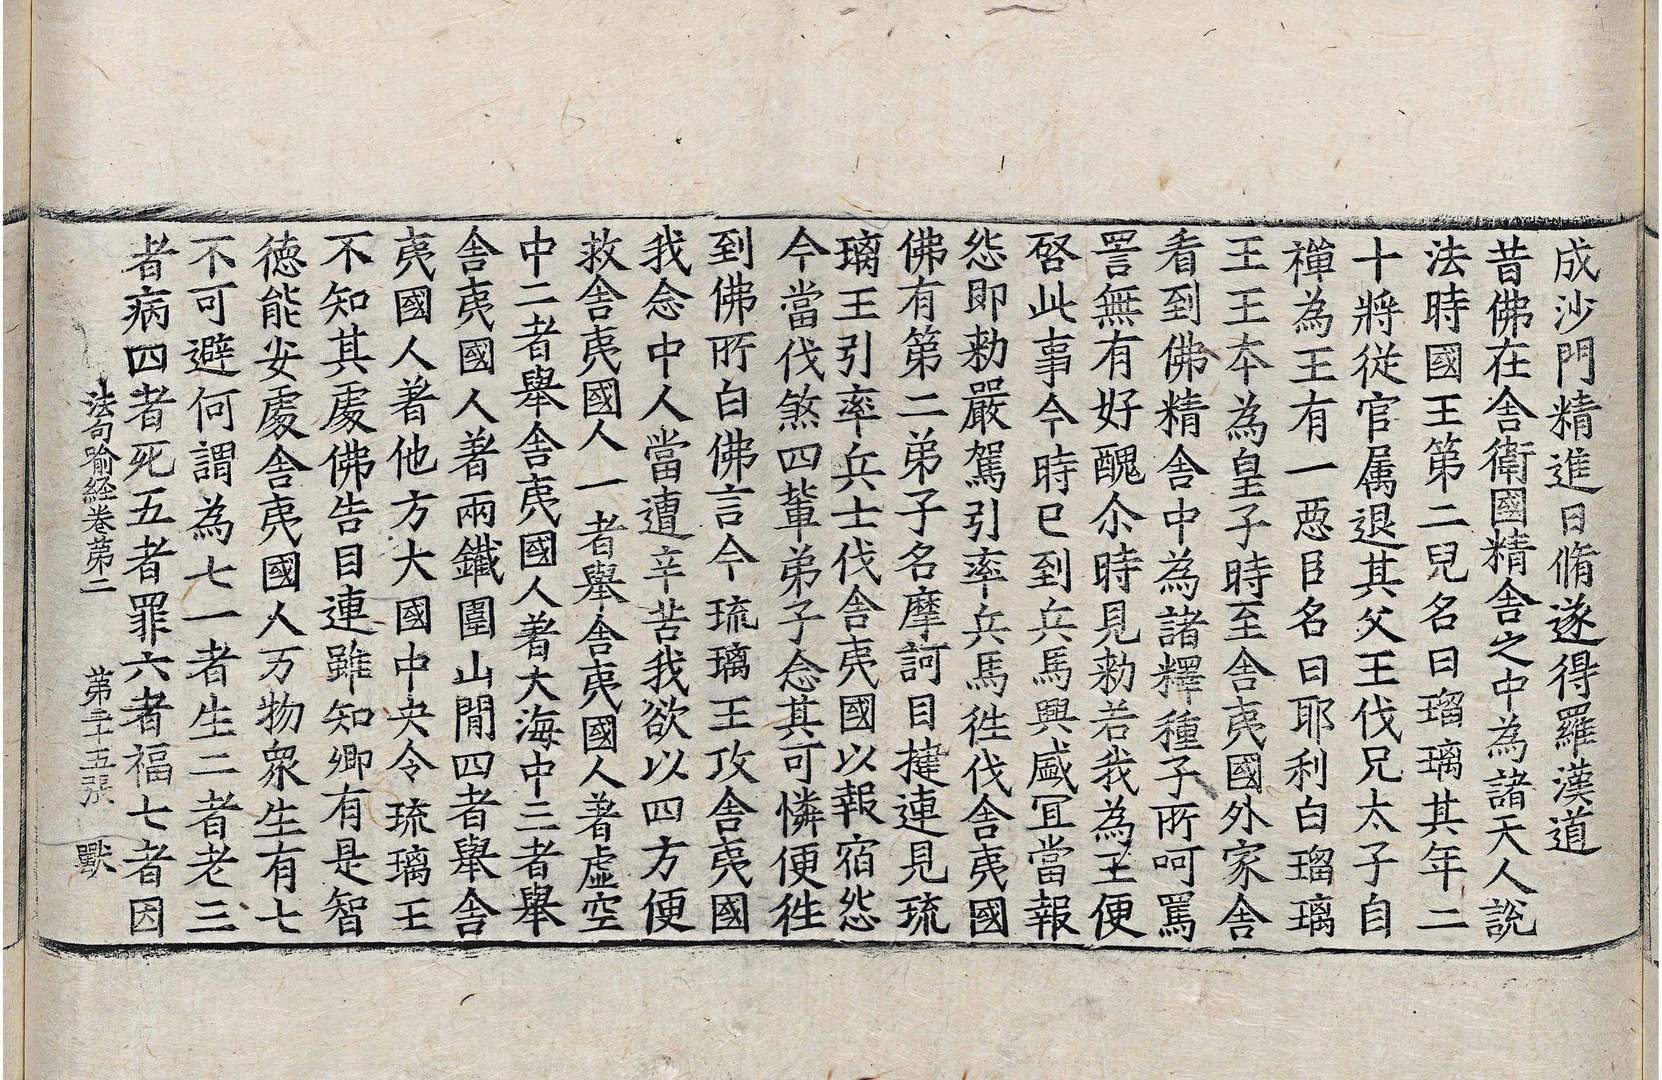 成沙門精進日脩遂得羅漢道
昔佛在舍衛國精舍之中為諸天人說
法時國王第二兒名曰瑠璃其年二
十將從官属退其父王伐兄太子自
禪為王有一惡臣名曰耶利白瑠璃
王王本為皇子時至舍夷國外家舍
看到佛精舍中為諸釋種子所呵罵
詈無有好醜尒時見勑若我為王便
啓此事今時已到兵馬興盛冝當報
怨即勑嚴駕引率兵馬徃伐舍夷國
佛有第二弟子名摩訶目揵連見琉
璃王引率兵士伐舍夷國以報宿怨
今當伐煞四輩弟子念其可憐便徃
到佛所白佛言今琉璃王攻舍夷國
我念中人當遭辛苦我欲以四方便
救舍夷國人一者舉舍夷國人著虛空
中二者舉舍夷國人著大海中三者舉
舍夷國人著兩鐵圍山間四者舉舍
夷國人著他方大國中央令琉璃王
不知其處佛告目連雖知卿有是智
徳能安處舍夷國人万物衆生有七
不可避何謂為七一者生二者老三
者病四者死五者罪六者福七者因
法句喻経卷第二 第三十五張 獸